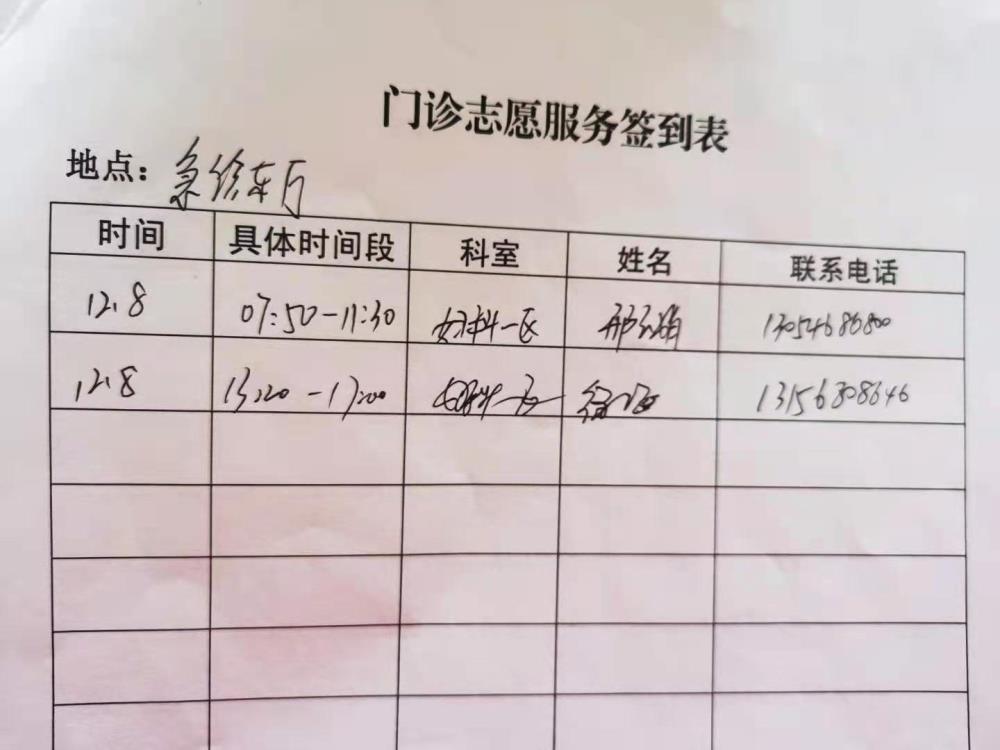 门诊志愿服务签到表
地点：急诊东厅
时间 具体时间段 科室 姓名 联系电话
12.8 07:50-11:30 妇科一区 13054686800
12.8 13:20-17:00 13156808646